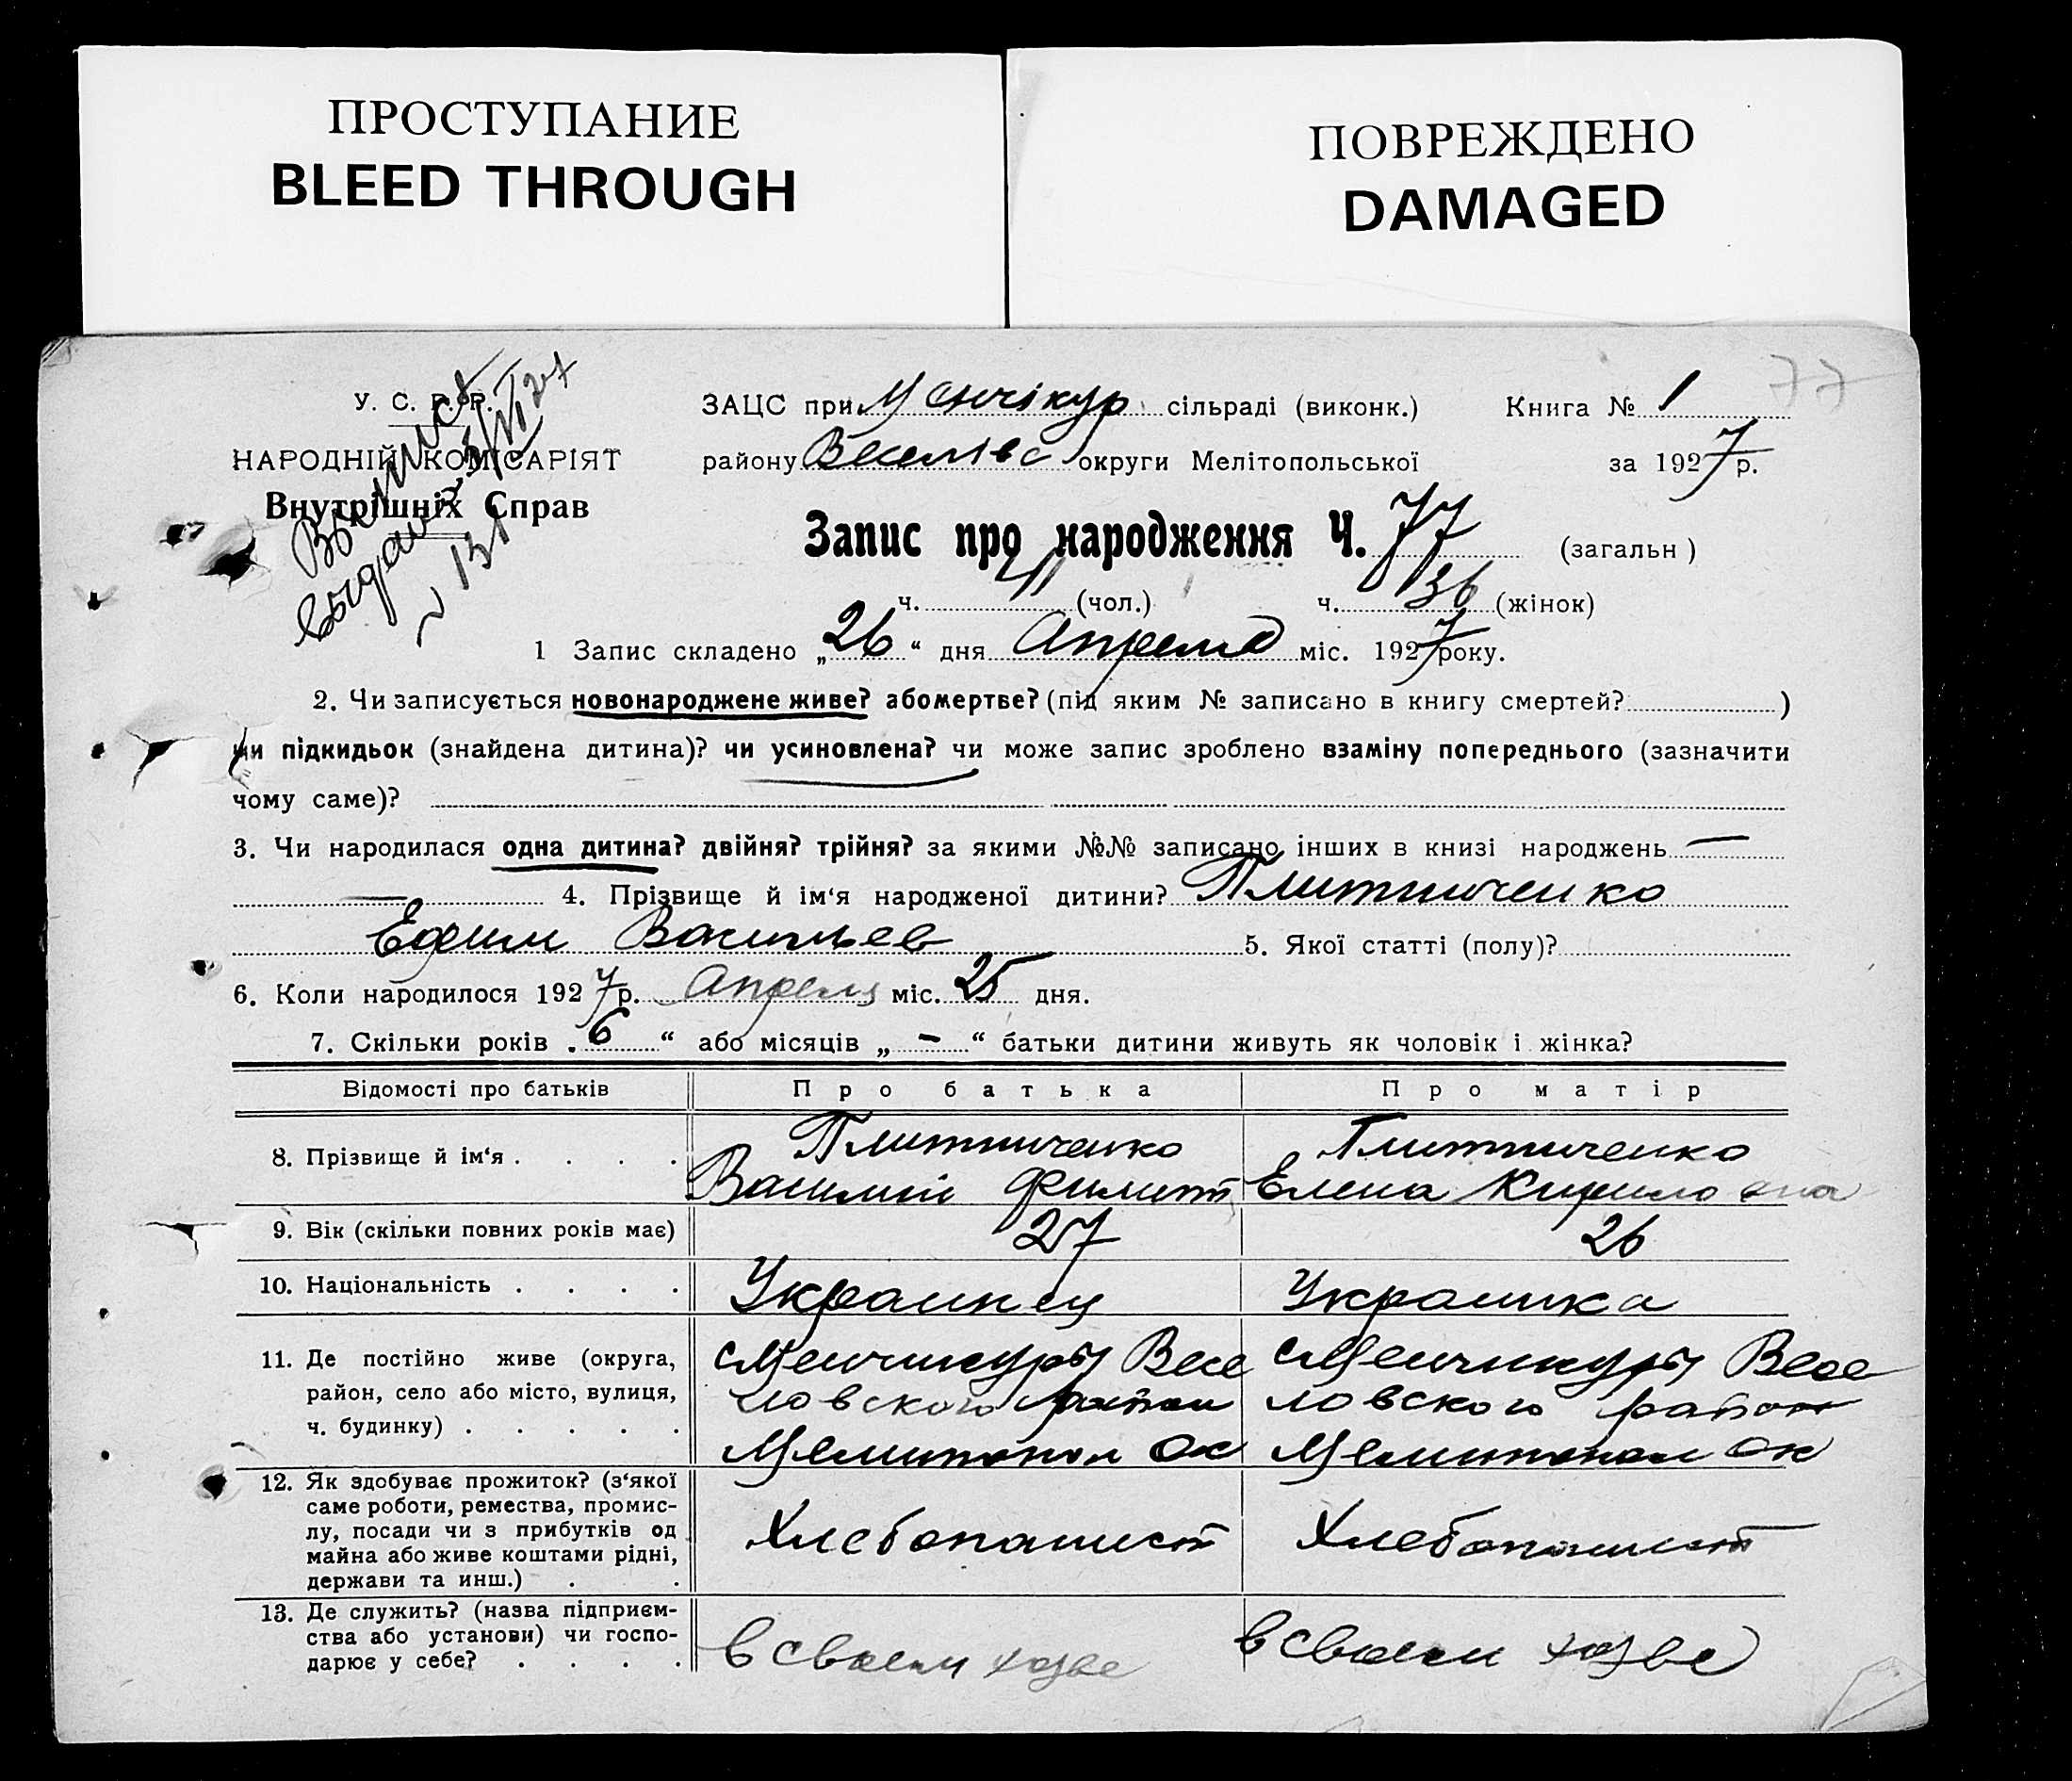 ПРОСТУПАНИЕ
BLEED THROUGH
ПОВРЕЖДЕНО
DAMAGED
77
У. С. Р. Р.
НАРОДНІЙ КОМІСАРІЯТ
Внутрішніх Справ
ЗАЦС при Менчікур сільраді (виконк.) Книга № 1
району Веселівс округи Мелітопольської за 1927 р.
Запис про народження Ч. 77 (загальн)
ч. 41 (чол.) ч. 36 (жінок)
1 Запис складено „26“ дня Апреля міс. 1927 року.
2. Чи записується новонароджене живе? або мертве? (під яким № записано в книгу смертей? )
чи підкидьок (знайдена дитина)? чи усиновлена? чи може запис зроблено взаміну попереднього (зазначити
чому саме)?
3. Чи народилася одна дитина? двійня? трійня? за якими №№ записано інших в книзі народжень —
— 4. Прізвище й ім‘я народженої дитини? Плитниченко
Ефим Васильев 5. Якої статті (полу)?
6. Коли народилося 1927 р. Апреля міс. 25 дня.
7. Скільки років „6“ або місяців „-“ батьки дитини живуть як чоловік і жінка?
Відомості про батьків Про батька Про матір
8. Прізвище й ім‘я . . . . Плитниченко Плитниченко
Василий Филип Елена Кириловна
9. Вік (скільки повних років має) 27 26
10. Національність . . . . Украинец Украинка
11. Де постійно живе (округа, с Менчикуры Весе с Менчикуры Весе
район, село або місто, вулиця, ловского район ловского район
ч. будинку) . . . . . Мелитопол Ок Мелитопол Ок
12. Як здобуває прожиток? (з‘якої
саме роботи, ремества, промис-
лу, посади чи з прибутків од Хлебопашест Хлебопашест
майна або живе коштами рідні,
держави та инш.) . .
13. Де служить? (назва підприєм-
ства або установи) чи госпо- в своем хозве в своем хозве
дарює у себе? . . . .